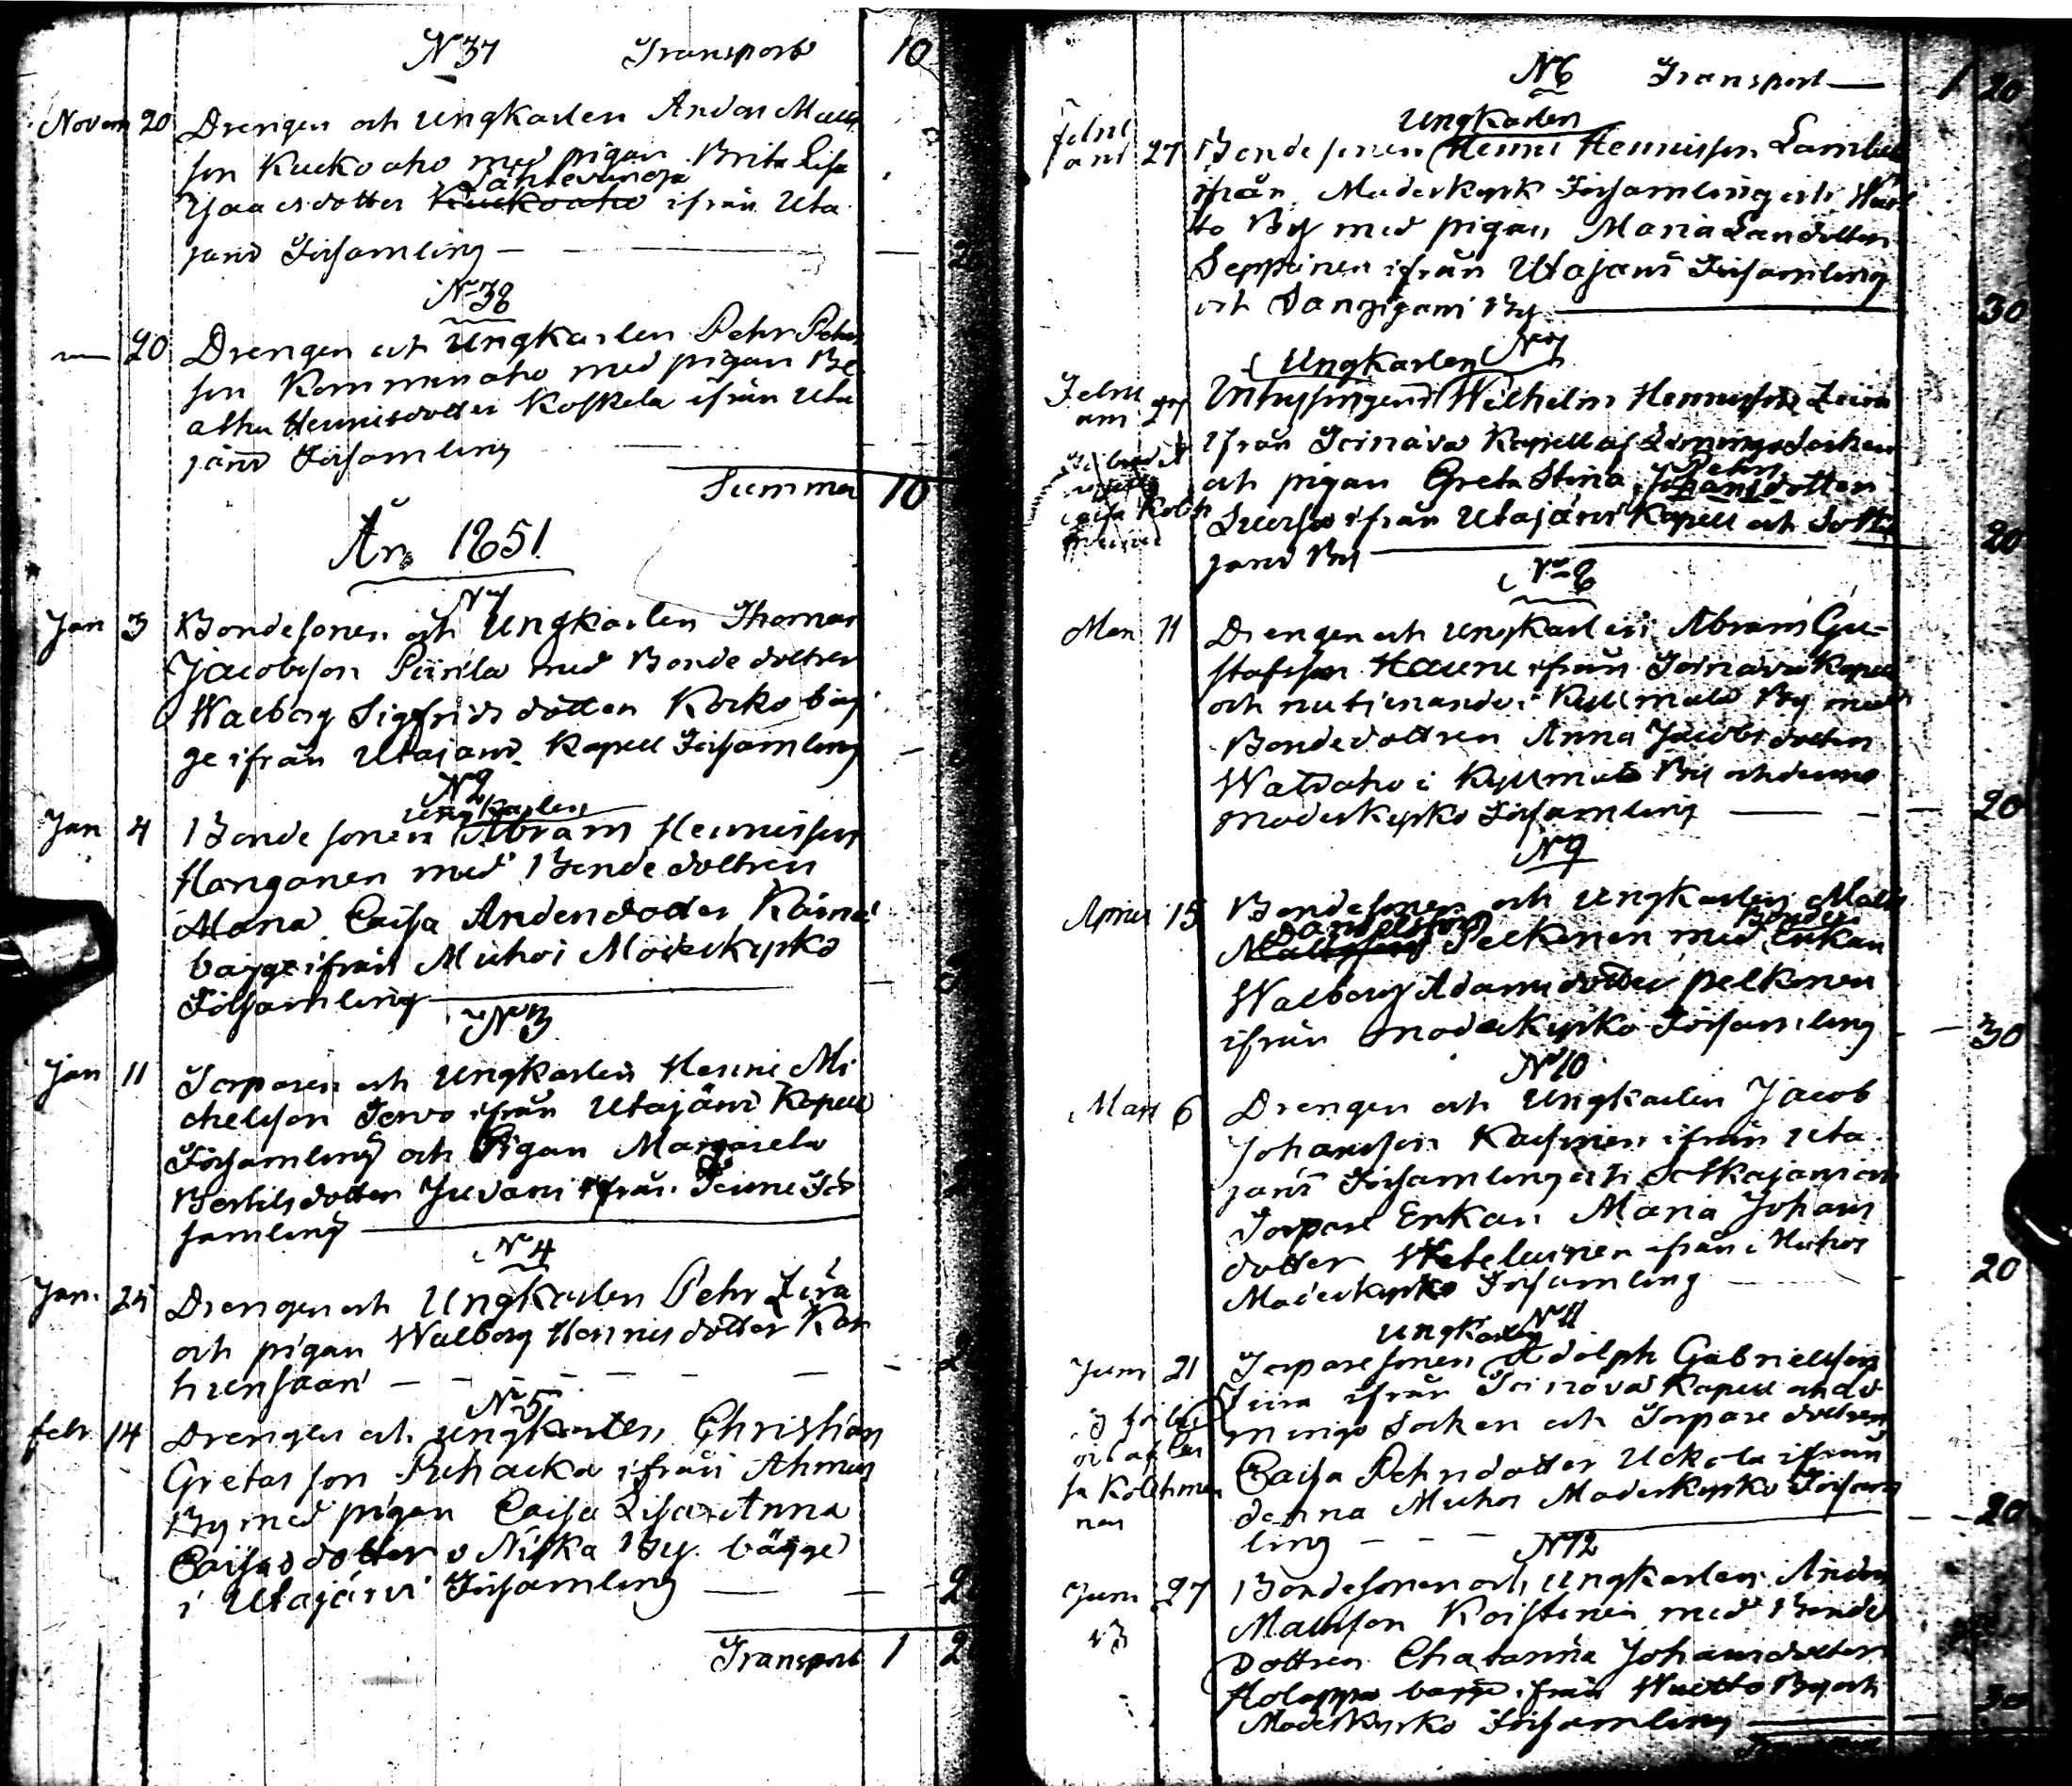 N 37 Transport 10
Novem 20 Drengen och Ungkarlen Anders Matts
son Kuckoaho med pigan Brita Lisa
Lahtevanoja
Isaacsdotter Kuckoaho ifrån Uta
järvi Församling
N 38
20 Drengen och Ungkarlen Pehr Pehrs
son Kommunaho med pigan Be
atha Hennisdotter Koskela ifrån Uta
järvi Församling
Summa 10
År 1851
N 1
Jan 3 Bondesonen och Ungkarlen Thomas
Jacobsson Piirila med Bondedottren
Walborg Sigfridsdotter Korko bäg
ge ifrån Utajärvi Kapell Församling
N 2
Ungkarlen
Jan 4 Bondesonen Abram Hennisson
Hanganen med Bondedottren
Maria Caisa Andersdotter Kärnä
bägge ifrån Muhos Moderkyrko
Församling
N 3
Jan 11 Torparen och Ungkarlen Henric Mi
chelsson Tervo ifrån Utajärvi Kapell
Församling och Pigan Margareta
Bertilsdotter Juvani ifrån För
samling
N 4
Jan. 25 Drengen och Ungkarlen Pehr Liira
och pigan Walborg Hennisdotter Kar
hunsaari
N 5
Febr 14 Drengen och Ungkarlen Christian
Gretasson Puhacka ifrån Ahmas
By med pigan Caisa Lisa Anna
Caisasdotter Niska By bägge
i Utajärvi Församling
Transport 1 2
N 6 Transport 1 20
Ungkarlen
Febru
ari 27 Bondesonen Henric Hennisson Lambi
ifrån Moderkyrk Församling och
to By med pigan Maria Larsdotter
Seppänen ifrån Utajärvi Församling
och Sangigarvi By 30
Ungkarlen N 7
Febru
ari 27 Wilhelm Hennisson Liira
ifrån Toinävä Kapell af Limingo Socken
Pehrs
och pigan Greta Stina Johansdotter
ifrån Utajärvi Kapell och Sotka
järvi By 20
N 8
Mars 11 Drengen och Ungkarlen Abram Gu-
stafsson Haurie ifrån Toinävä Kapell
och nu tjenande i Kyllmälä By med
Bondedottren Anna Jacobsdotter
Wataoho i Kyllmälä By och denna
Moderkyrko Församling 20
N 9
April 15 Bondesonen och Ungkarlen Matts
Danielsson Bonde
Mattsson Pelkonen med Enkan
Walborg Adamsdotter Pelkonen
ifrån Moderkyrko Församling 30
N 10
Mars 6 Drengen och Ungkarlen Jacob
Johansson Kaipinen ifrån Uta
järvi Församling och Sotkajärvi
Torpare Enkan Maria Johans
dotter Heteluinen ifrån Muhos
Moderkyrko Församling 20
Ungkarlen N 11
Juni 21 Torparesonen Adolph Gabrielsson
Liira ifrån Toinävä Kapell och Li
mingo Socken och Torpare dottren
Caisa Pehrsdotter Uckola ifrån
denna Muhos Moderkyrko Församl
ling 20
N 12
Juni 27 Bondesonen och Ungkarlen Anders
Mattsson Koistinen med Bonde
dottren Chatarina Johansdotter
Holappa bägge ifrån Wuotto By och
Moderkyrko Församling 30